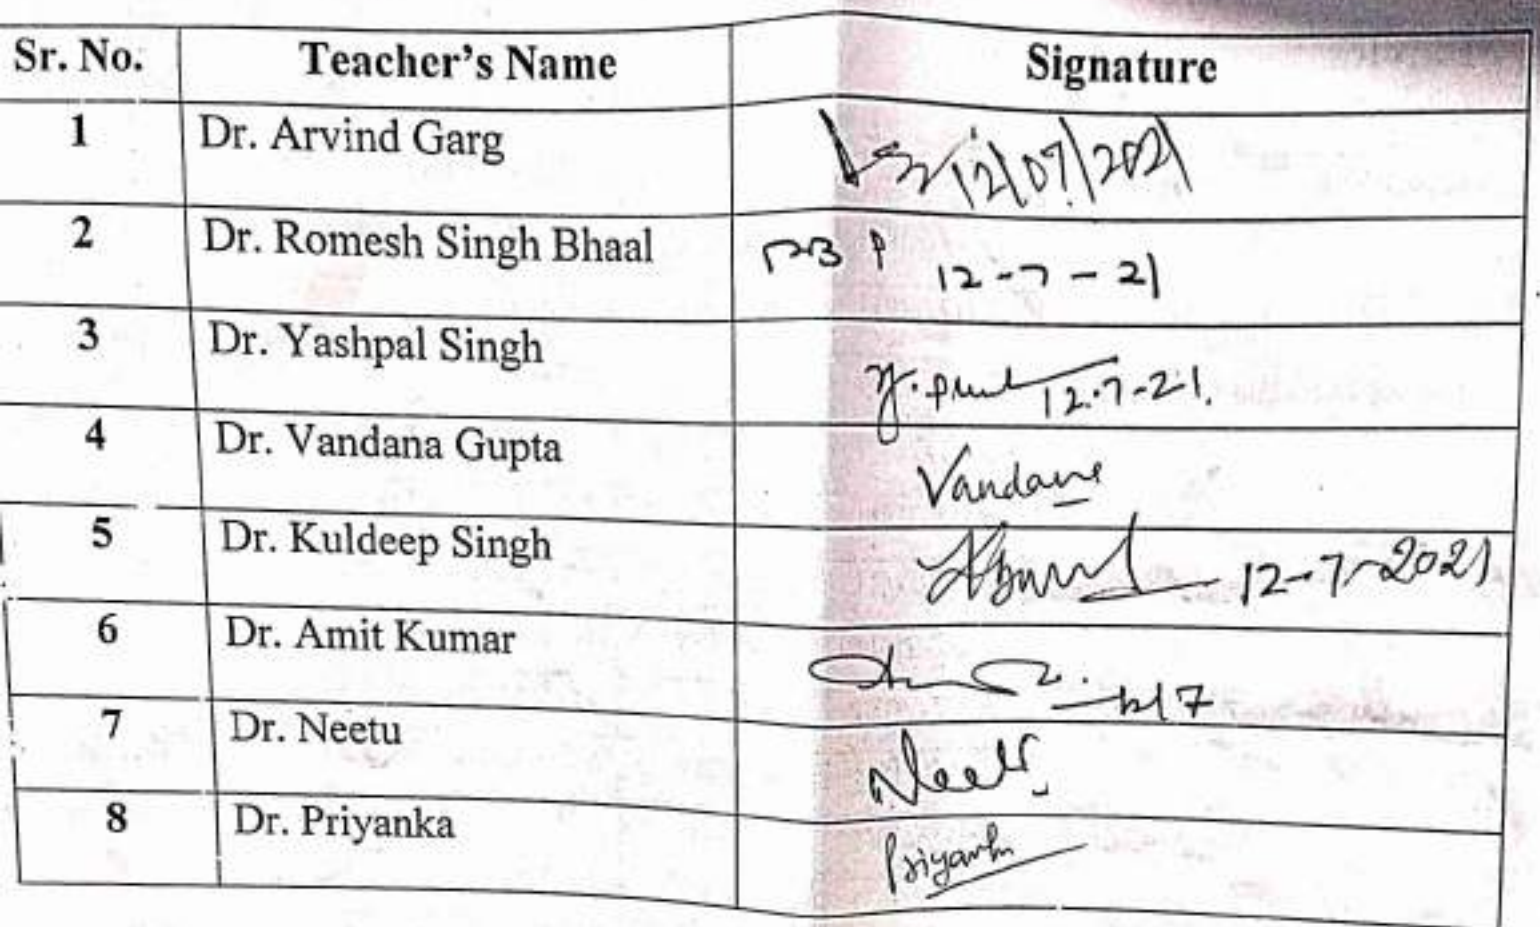 Sr. No. Teacher's Name Signature
1 Dr. Arvind Garg 12/07/2021
2 Dr. Romesh Singh Bhaal 12-7-21
3 Dr. Yashpal Singh 12.7-21.
4 Dr. Vandana Gupta Vandana
5 Dr. Kuldeep Singh 12-7-2021
6 Dr. Amit Kumar
7 Dr. Neetu Neetu
8 Dr. Priyanka Priyanka